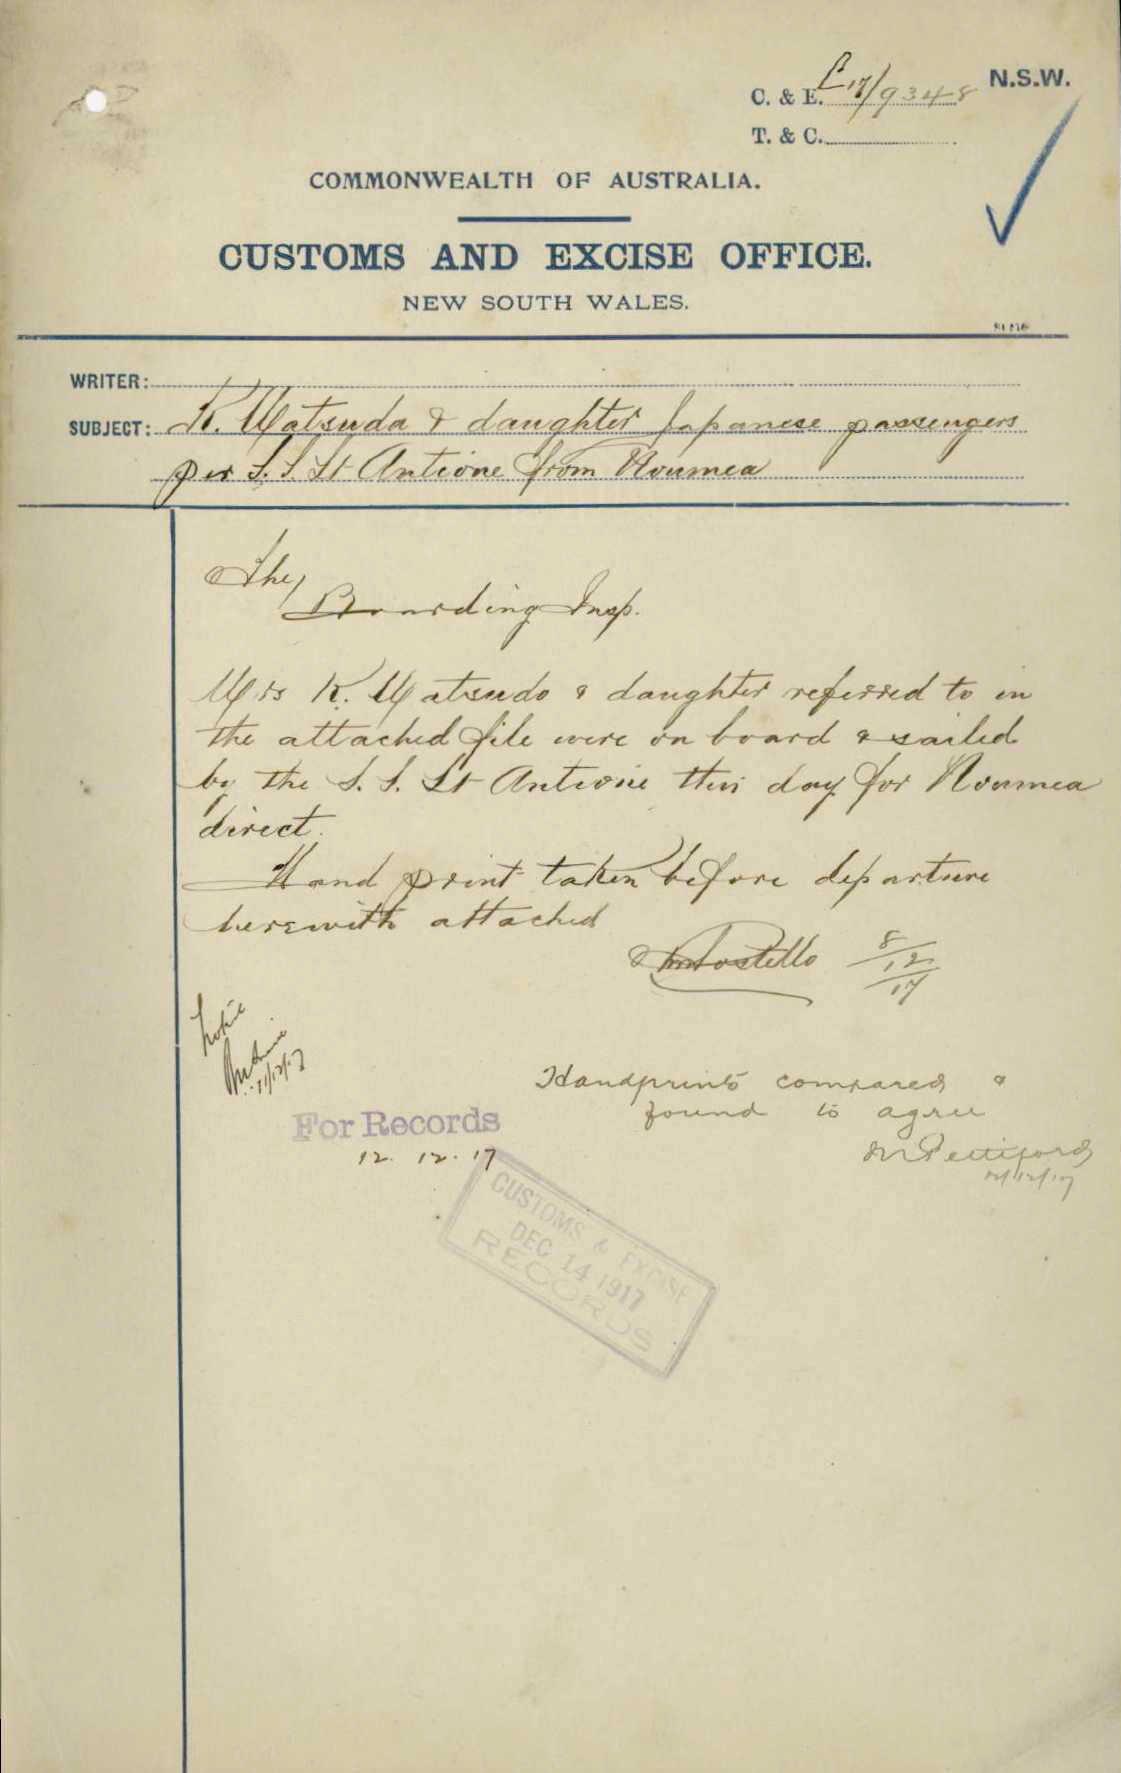 N.S.W.
C. & E. 17/9348
T. & C.
COMMONWEALTH OF AUSTRALIA.
CUSTOMS AND EXCISE OFFICE.
NEW SOUTH WALES.
WRITER:
SUBJECT: K. Matsuda & daughter Japanese passengers
per S.S. St Antione from Noumea
The
Boarding Insp.
Mrs K. Matsudo & daughter referred to in
the attached file were on board & sailed
by the S.S. St Antione this day for Noumea
direct.
Hand print taken before departure
herewith attached
8/12/17
11/12/17
Handprints compared &
found to agree
For Records
12.12.17
CUSTOMS & EXCISE
DEC 14 1917
RECORDS